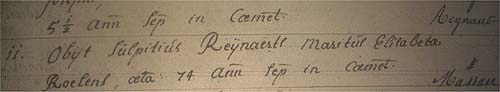 5 1/2 añ Sep in Cœmet. Reynaert
11. Obijt Sulpitius Reÿnaerts Maritus Elisabeta
Roelens, æta: 74 añ Sep in Cœmet.